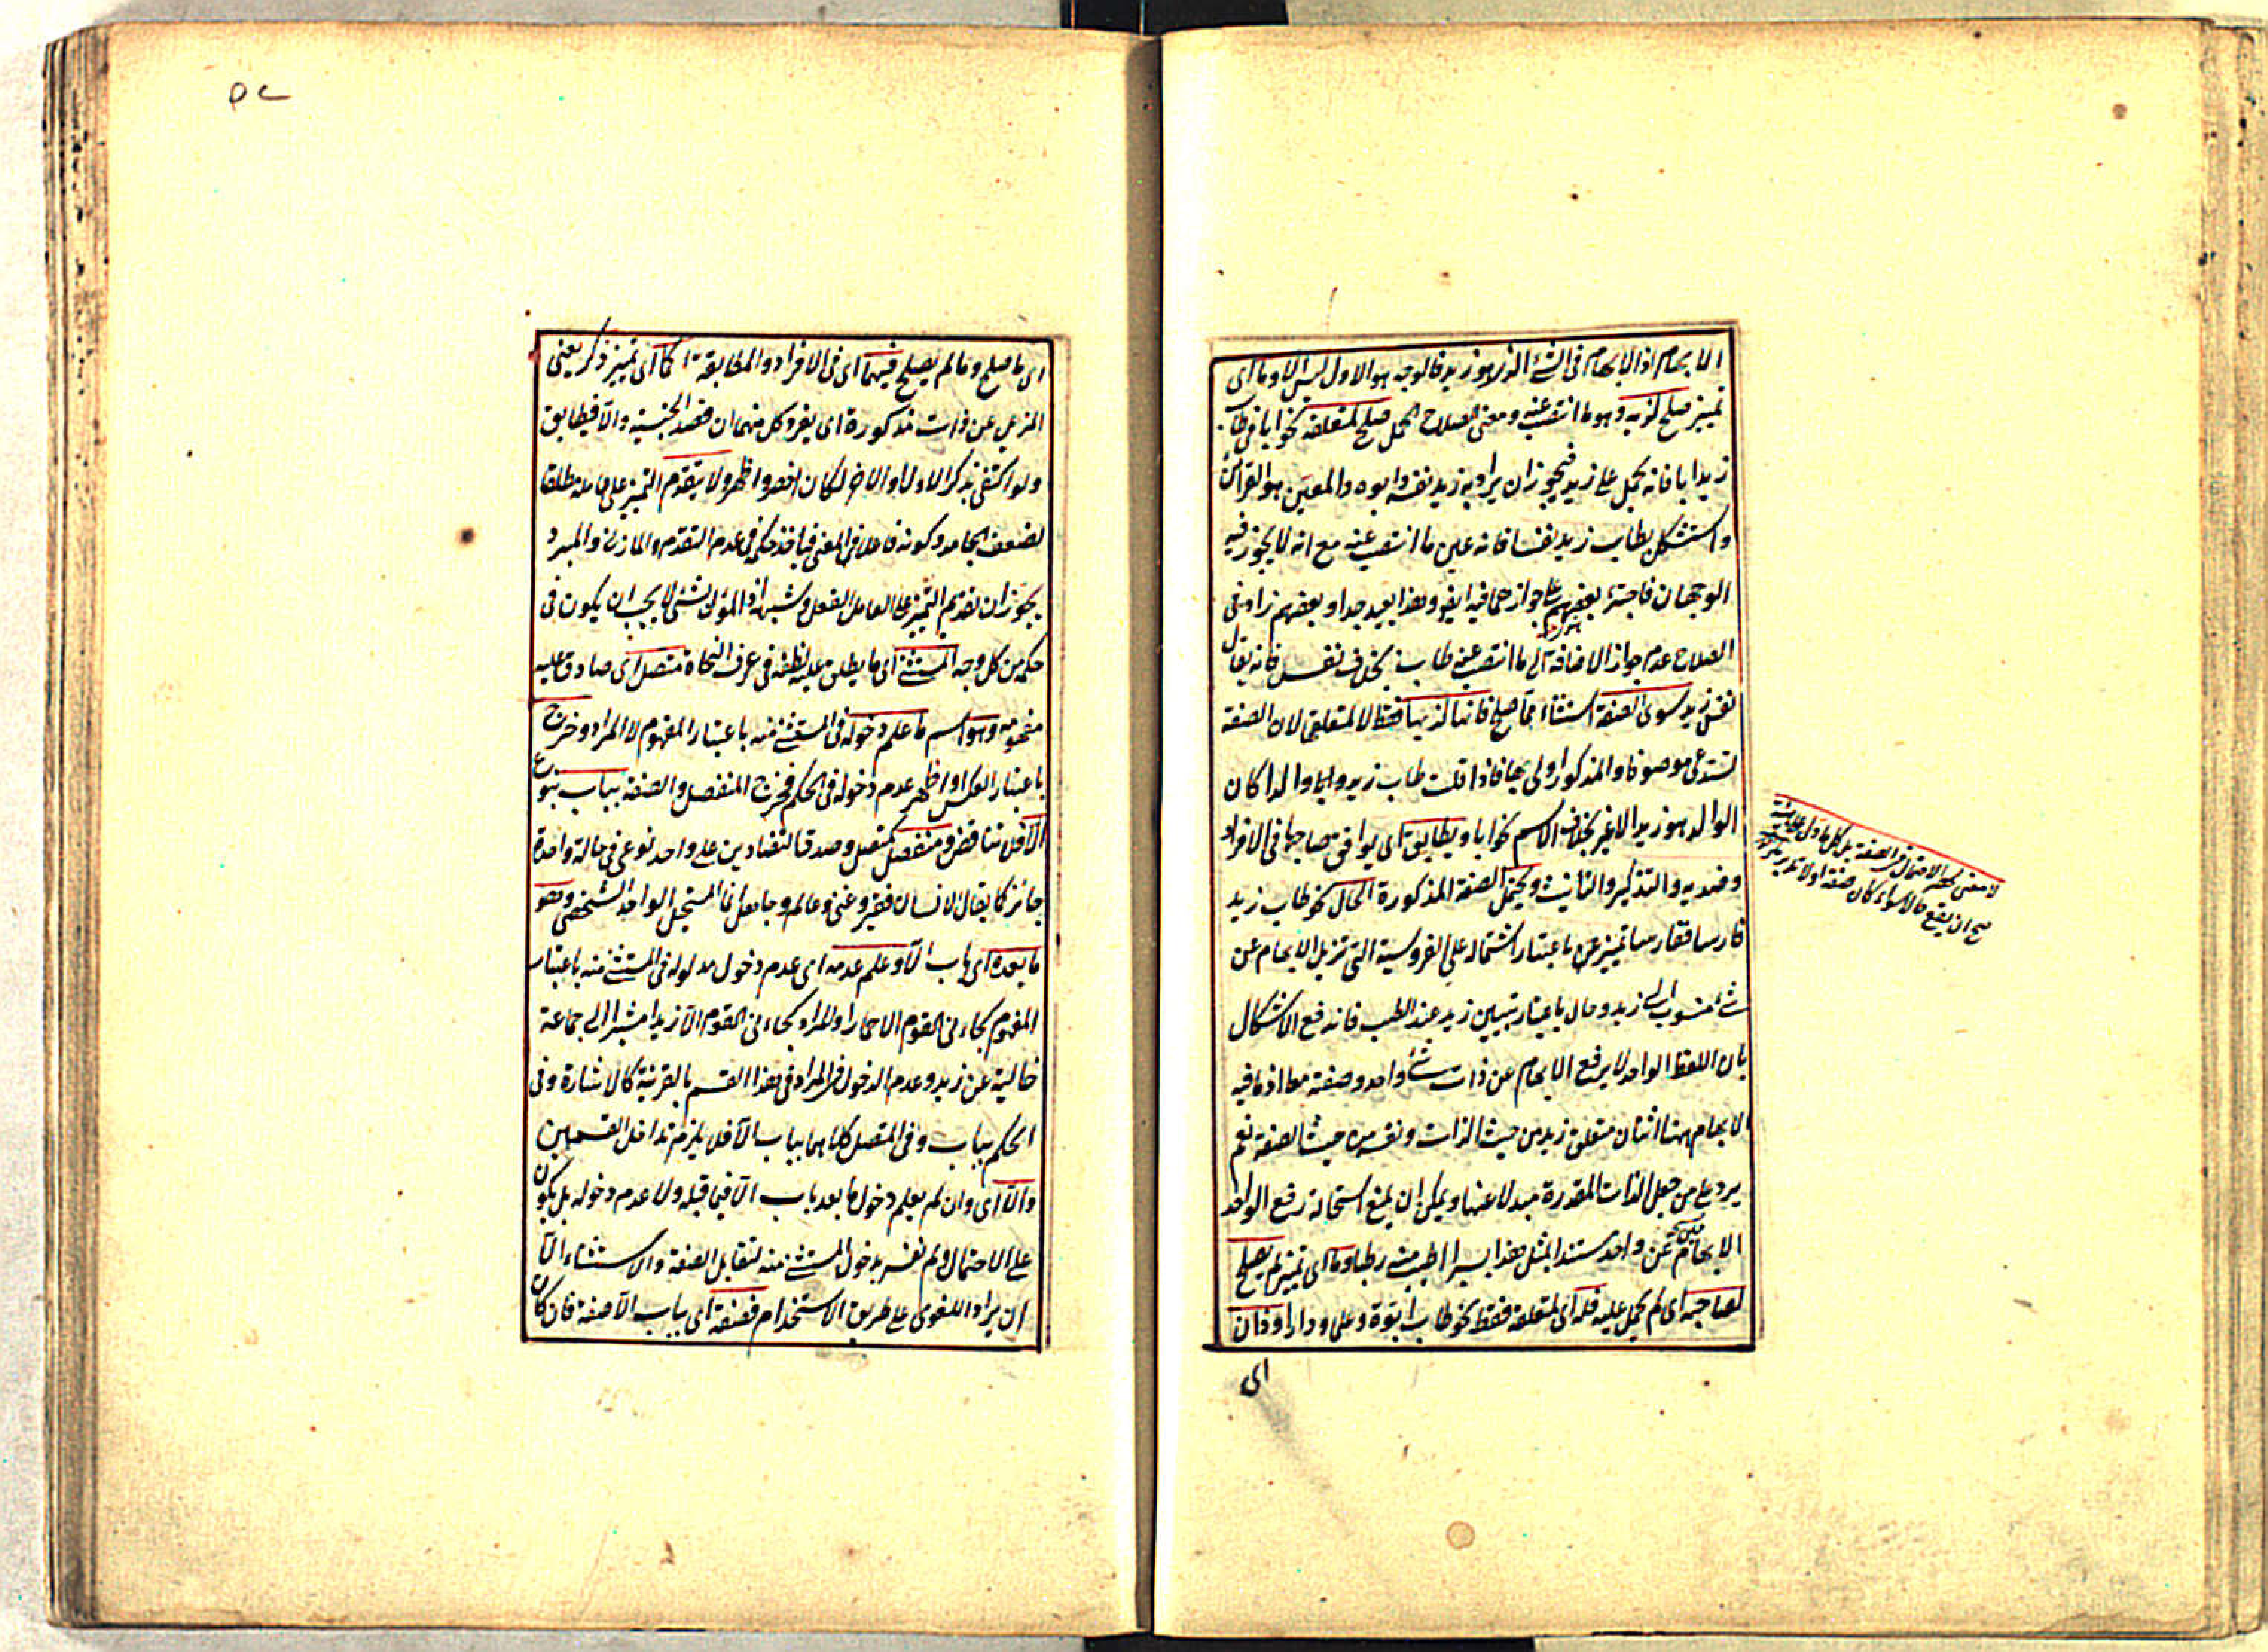 الابهام اذ الابهام فى الشئ الذى هو زيد فالوجه هو الاول ليس الا وما اى
تمييز صلح لذيه وهو ما انتصب عنه ومعنى الصلاح الحمل صلح لمتعلقه نحو ابا فى طاب
زيد ابا فانه يحمل على زيد فيجوز ان يراد به زيد نفسه وابوه والمعين هو القرائن
واستشكل بطاب زيد نفسا فانه عين ما انتصب عنه مع انه لا يجوز فيه
الوجهان فاجترئ بعضهم على جوازهما فيه ايضا وهذا بعيد جدا وبعضهم زاد فى
الصلاح عدم جواز الاضافة الى ما انتصب عنه طاب بخلاف نفس فانه يقال
نفس زيد سوى الصفة استثناء مما صلح فانها لذيها فقط لا لمتعلقى لان الصفة
تستدعى موصوفا والمذكور اولى بها فاذا قلت طاب زيد والدا كان
الوالد هو زيد لا غير بخلاف الاسم نحو ابا ويطابق اى يوافق صاحبها فى الافراد
وضديه والتذكير والتانيث ويحتمل الصفة المذكورة الحال نحو طاب زيد
فارسا ففارسا تمييز عن باعتبار اشتماله على الفروسية التى تزيل الابهام عن
شئ منسوب الى زيد وحال باعتبار تبيين زيد عند الطيب فاندفع الاشكال
بان اللفظ الواحد لا يرفع الابهام عن ذات شئ واحد وصفته معا اذ ما فيه
الابهام ههنا اثنان متعلق زيد من حيث الذات ونفسه من حيث الصفة نعم
يرد على من جعل الذات المقدرة مبدلا عنها ويمكن ان يمنع استحالة رفع الواحد
الابهام عن واحد مستندا بمثل هذا بسرا اطيب منه رطبا وما اى تمييز لم يصلح
لصاحبه اى لم يحمل عليه فله اى لمتعلقه فقط نحو طاب ابوة وعلما ودارا وذان
اى
لا معنى لحصر الاحتمال فى الصفة بل كل ما دل على هيئة
صح ان يقع حالا سواء كان صفة او لا
٥٢
اى ما صلح وما لم يصلح فيهما اى فى الافراد والمطابقة كما اى تمييز ذكر يعنى
المزيل عن ذات مذكورة اى يفرد كل منهما ان قصد الجنسية والا فيطابق
ولو اكتفى بذكر الاول او الاخر لكان اخصر واظهر ولا يتقدم التمييز على عامله مطلقا
لضعف الجامد وكونه فاعلا فى المعنى فياخذ حكمه فى عدم التقدم والمازنى والمبرد
يجوزان تقديم التمييز على العامل الفعل وشبهه اذ المؤل بشئ لا يجب ان يكون فى
حكمه من كل وجه المستثنى اى ما يطلق عليه لفظه فى عرف النحاة متصل اى صادق عليه
مفهومه وهو اسم ما علم دخوله فى المستثنى منه باعتبار المفهوم لا المراد وخرج
باعتبار العكس او اظهر عدم دخوله فى الحكم فخرج المنفصل والصفة بباب بنوع
الا فلا تناقض ومنفصل كمتصل وصدق المتضادين على واحد نوعى فى حالة واحدة
جائز كما يقال الانسان فقير وغنى وعالم وجاهل انما المستحيل الواحد الشخصى وهو
ما بعده اى باب الا وعلم عدمه اى عدم دخول مدلوله فى المستثنى منه باعتبار
المفهوم كجاءنى القوم الا حمارا والمراد كجاءنى القوم الا زيدا مشيرا الى جماعة
خالية عن زيد وعدم الدخول فى المراد فى هذا القسم بالقرينة كالاشارة وفى
الحكم بباب وفى المتصل كلاهما بباب الا فلا يلزم تداخل القسمين
والا اى وان لم يعلم دخول ما بعد باب الا فيما قبله ولا عدم دخوله بل يكون
على الاحتمال ولم نفسر بدخول المستثنى منه لتقابل الصفة والاستثناء الا
ان يراد اللغوى على طريق الاستخدام فصفة اى بباب الا صفة فان كان